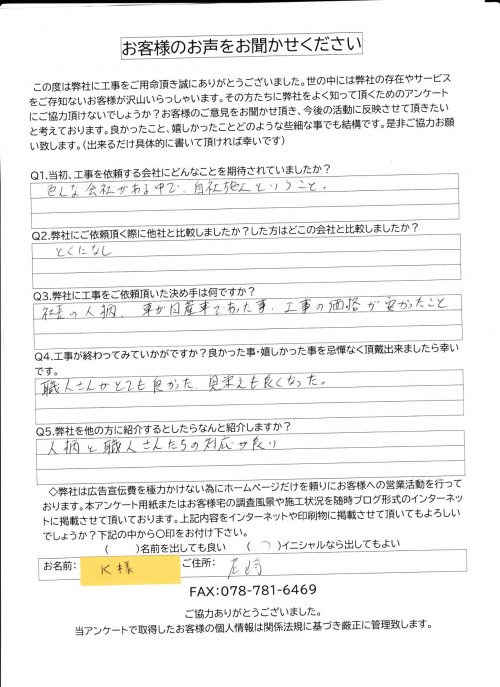 お客様のお声をお聞かせください
この度は弊社に工事をご用命頂き誠にありがとうございました。世の中には弊社の存在やサービス
をご存知ないお客様が沢山いらっしゃいます。その方たちに弊社をよく知って頂くためのアンケート
にご協力頂けないでしょうか?お客様のご意見をお聞かせ頂き、今後の活動に反映させて頂きたい
と考えております。良かったこと、嬉しかったことどのような些細な事でも結構です。是非ご協力お願
い致します。(出来るだけ具体的に書いて頂ければ幸いです)
Q1.当初、工事を依頼する会社にどんなことを期待されていましたか?
色んな会社がある中で、自社職人ということ。
Q2.弊社にご依頼頂く際に他社と比較しましたか?した方はどこの会社と比較しましたか?
とくになし
Q3.弊社に工事をご依頼頂いた決め手は何ですか?
社長の人柄、車が日産車であった事、工事の価格が安かったこと
Q4.工事が終わってみていかがですか?良かった事・嬉しかった事を忌憚なく頂戴出来ましたら幸い
です。
職人さんがとても良かった、見栄えも良くなった。
Q5.弊社を他の方に紹介するとしたらなんと紹介しますか?
人柄と職人さんたちの対応が良い
◇弊社は広告宣伝費を極力かけない為にホームページだけを頼りにお客様への営業活動を行って
おります。本アンケート用紙またはお客様宅の調査風景や施工状況を随時ブログ形式のインターネッ
トに掲載させて頂いております。上記内容をインターネットや印刷物に掲載させて頂いてもよろしい
でしょうか?下記の中から〇印をお付け下さい。
( )名前を出しても良い ( )イニシャルなら出してもよい
お名前: K様 ご住所: 尼崎
FAX:078-781-6469
ご協力ありがとうございました。
当アンケートで取得したお客様の個人情報は関係法規に基づき厳正に管理致します。